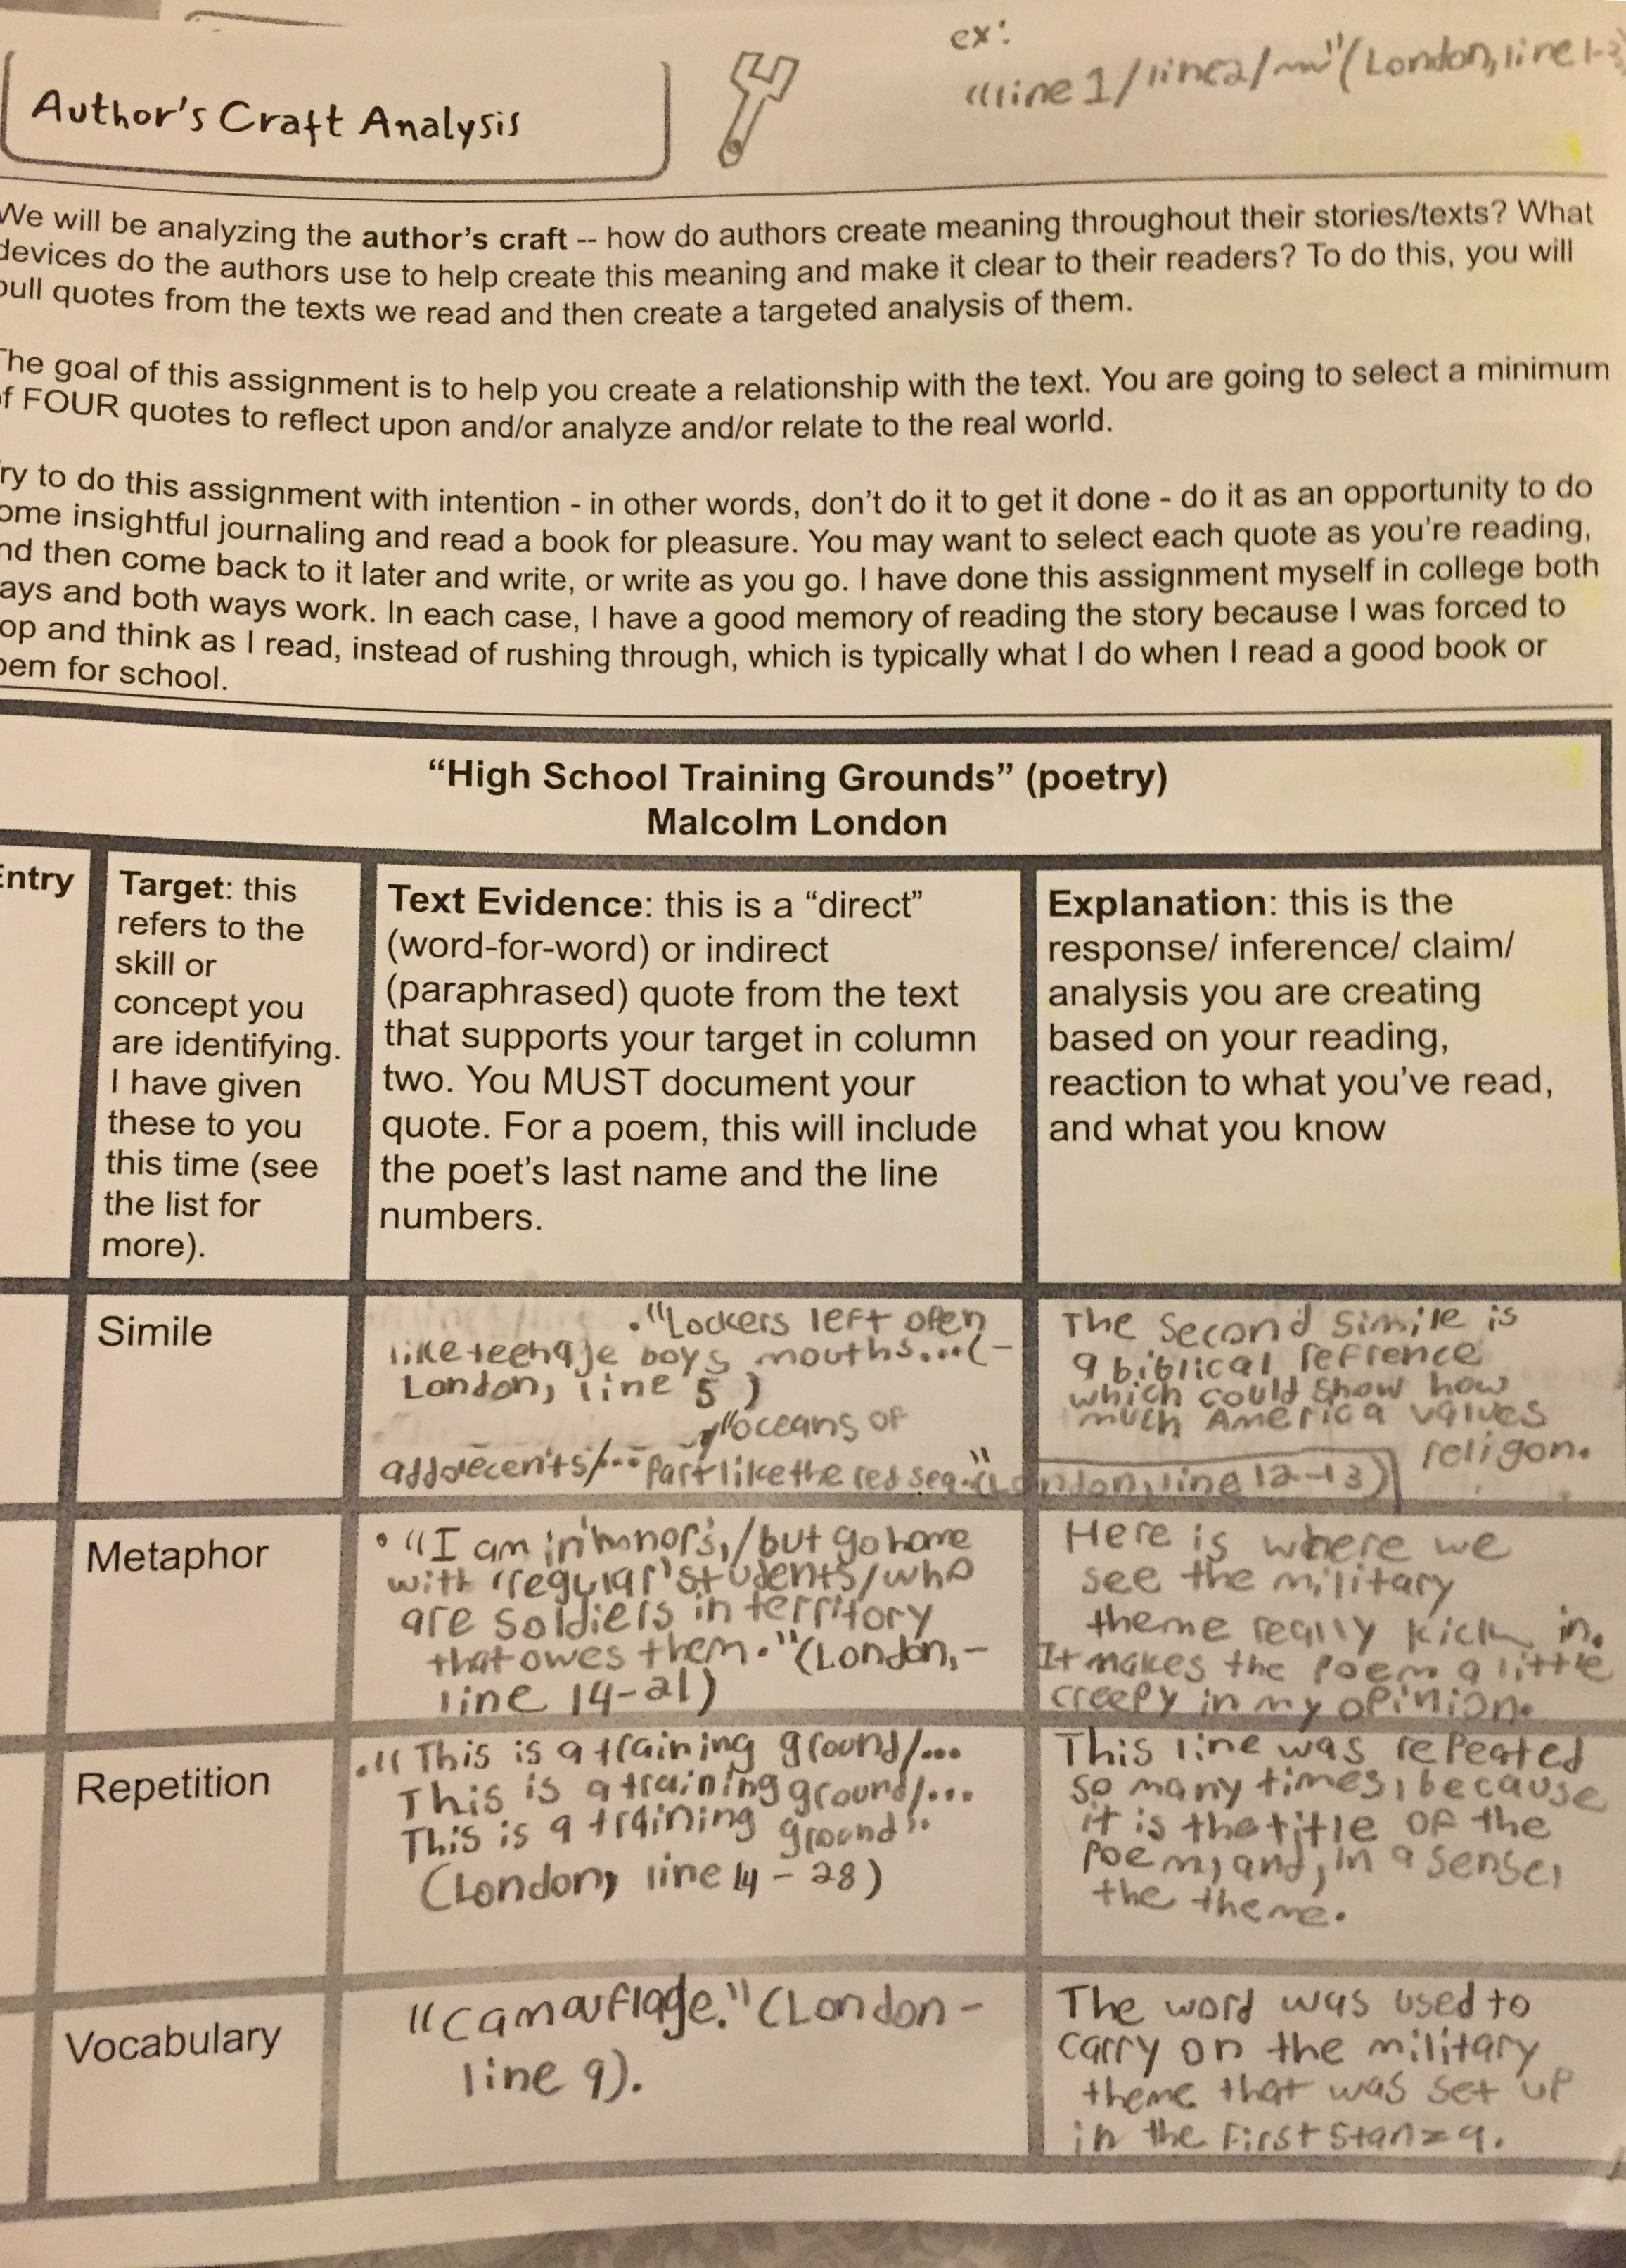 ex:
"line 1/line2/~~"(London, line 1-3)
Author's Craft Analysis
We will be analyzing the author's craft -- how do authors create meaning throughout their stories/texts? What
devices do the authors use to help create this meaning and make it clear to their readers? To do this, you will
pull quotes from the texts we read and then create a targeted analysis of them.
The goal of this assignment is to help you create a relationship with the text. You are going to select a minimum
of FOUR quotes to reflect upon and/or analyze and/or relate to the real world.
ry to do this assignment with intention - in other words, don't do it to get it done - do it as an opportunity to do
ome insightful journaling and read a book for pleasure. You may want to select each quote as you're reading,
nd then come back to it later and write, or write as you go. I have done this assignment myself in college both
ays and both ways work. In each case, I have a good memory of reading the story because I was forced to
op and think as I read, instead of rushing through, which is typically what I do when I read a good book or
oem for school.
"High School Training Grounds" (poetry)
Malcolm London
Entry
Target: this
refers to the
skill or
concept you
are identifying.
I have given
these to you
this time (see
the list for
more).
Text Evidence: this is a "direct"
(word-for-word) or indirect
(paraphrased) quote from the text
that supports your target in column
two. You MUST document your
quote. For a poem, this will include
the poet's last name and the line
numbers.
Explanation: this is the
response/ inference/ claim/
analysis you are creating
based on your reading,
reaction to what you've read,
and what you know
Simile
."Lockers left open
like teenage boys mouths...(-
London, line 5)
"oceans of
addorecents/... part like the red sea."(London, line 12-13)
The second simile is
a biblical refrence
which could show how
much America values
religon.
Metaphor
• "I am in 'honors',/but go home
with 'regular' students/who
are soldiers in territory
that owes them."(London,-
line 14-21)
Here is where we
see the military
theme really kick in.
It makes the poem a little
creepy in my opinion.
Repetition
."This is a training ground/...
This is a training ground/...
This is a training ground".
(London, line 14-28)
This line was repeated
so many times, because
it is the title of the
poem, and, in a sense,
the theme.
Vocabulary
"camouflage."(London-
line 9).
The word was used to
carry on the military
theme that was set up
in the first stanza.